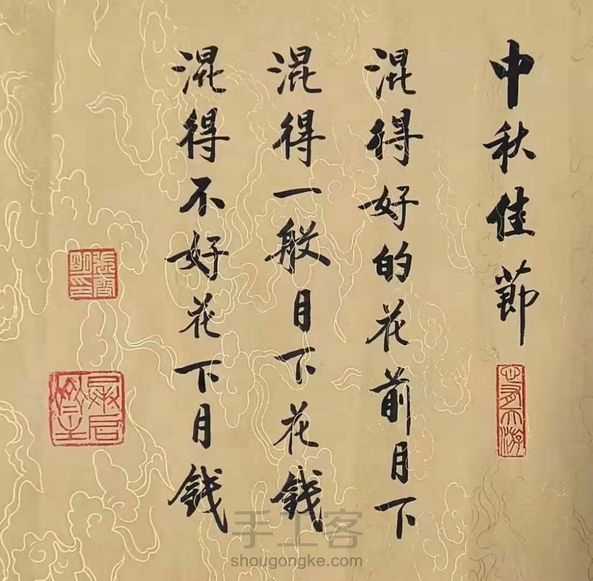 中秋佳節
混得好的花前月下
混得一般月下花錢
混得不好花下月錢
手工客
shougongke.com